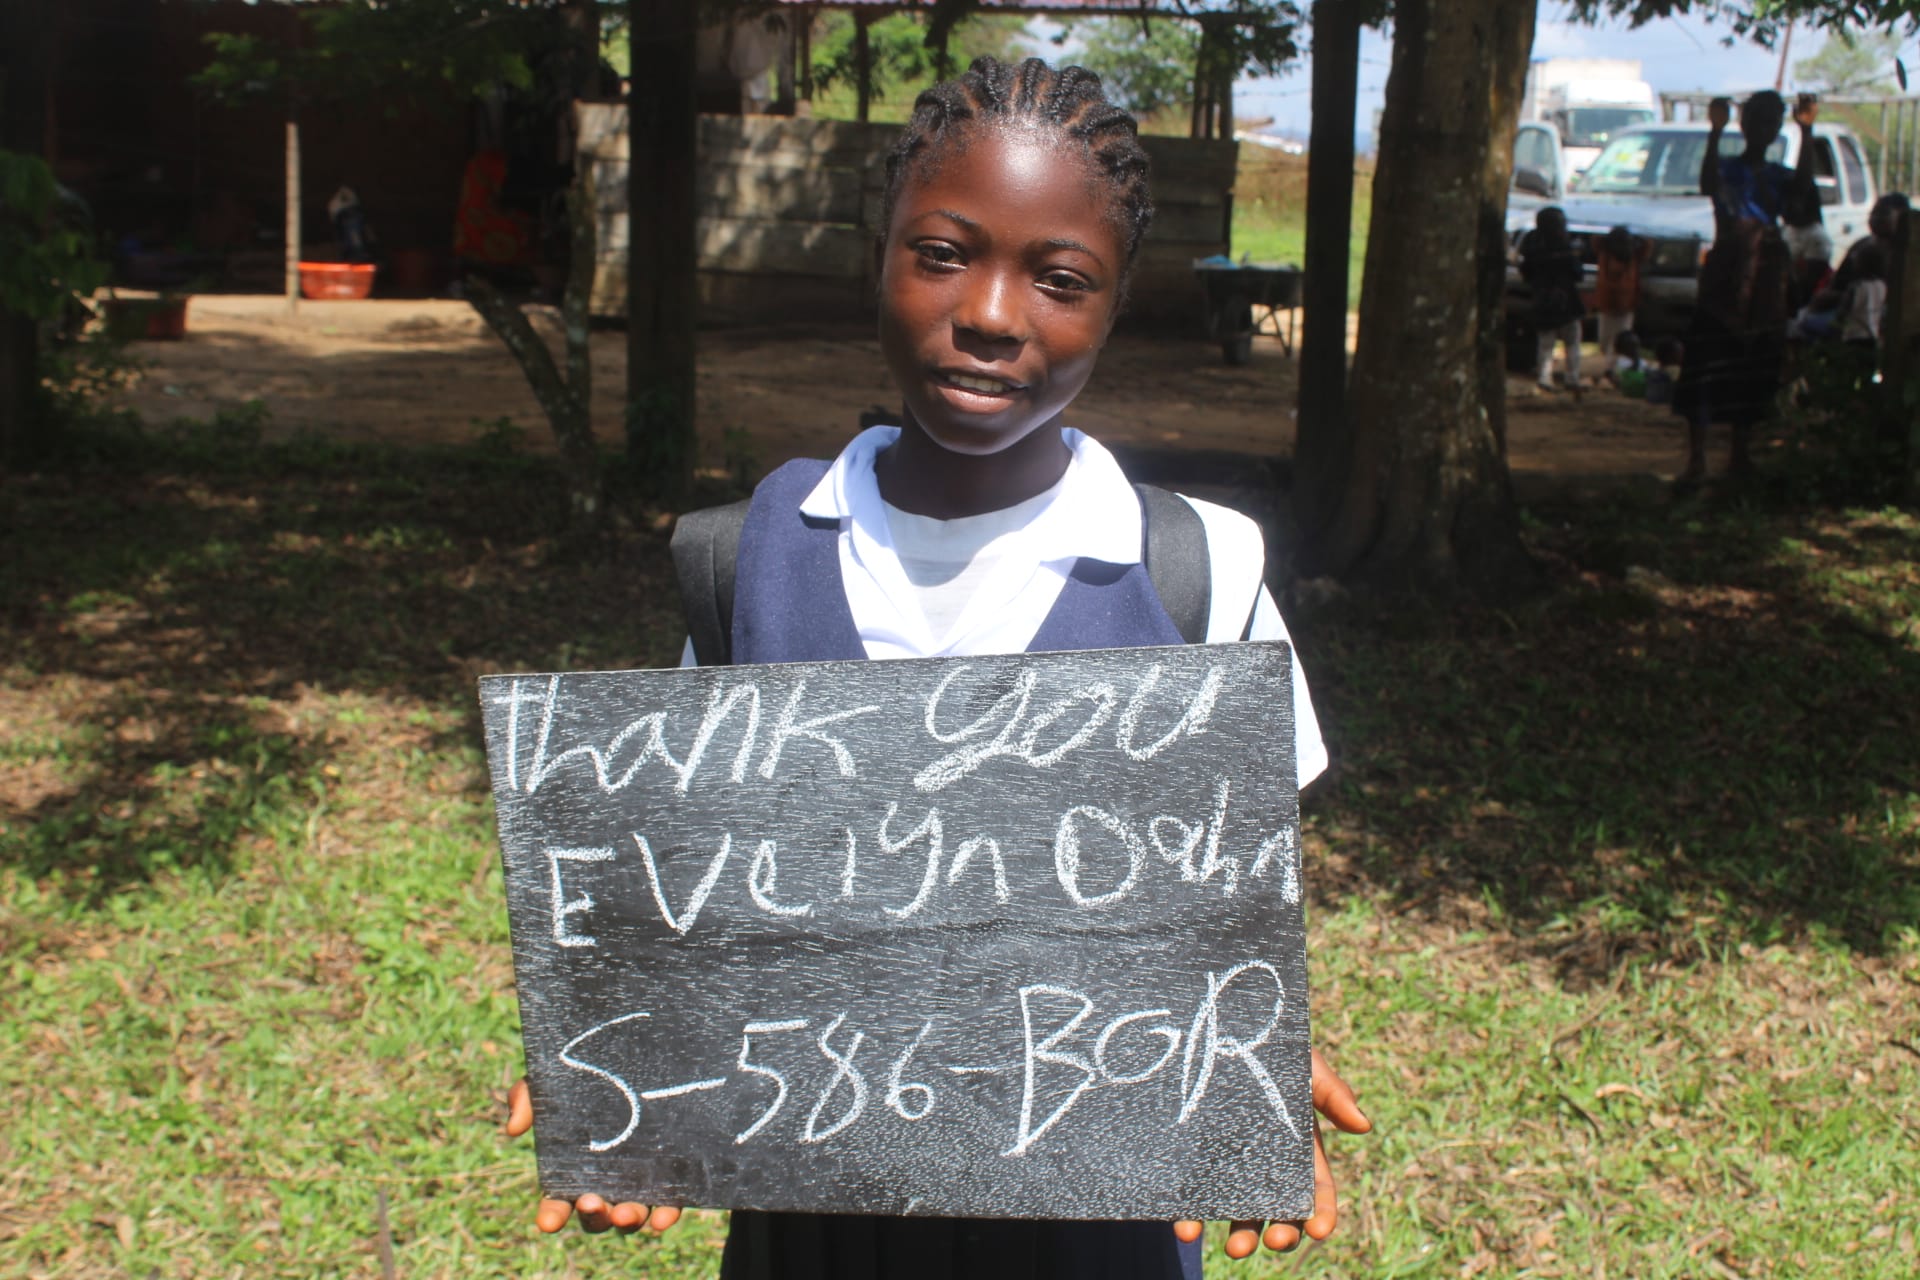 Thank You
Evelyn Dahn
S-586-BOR